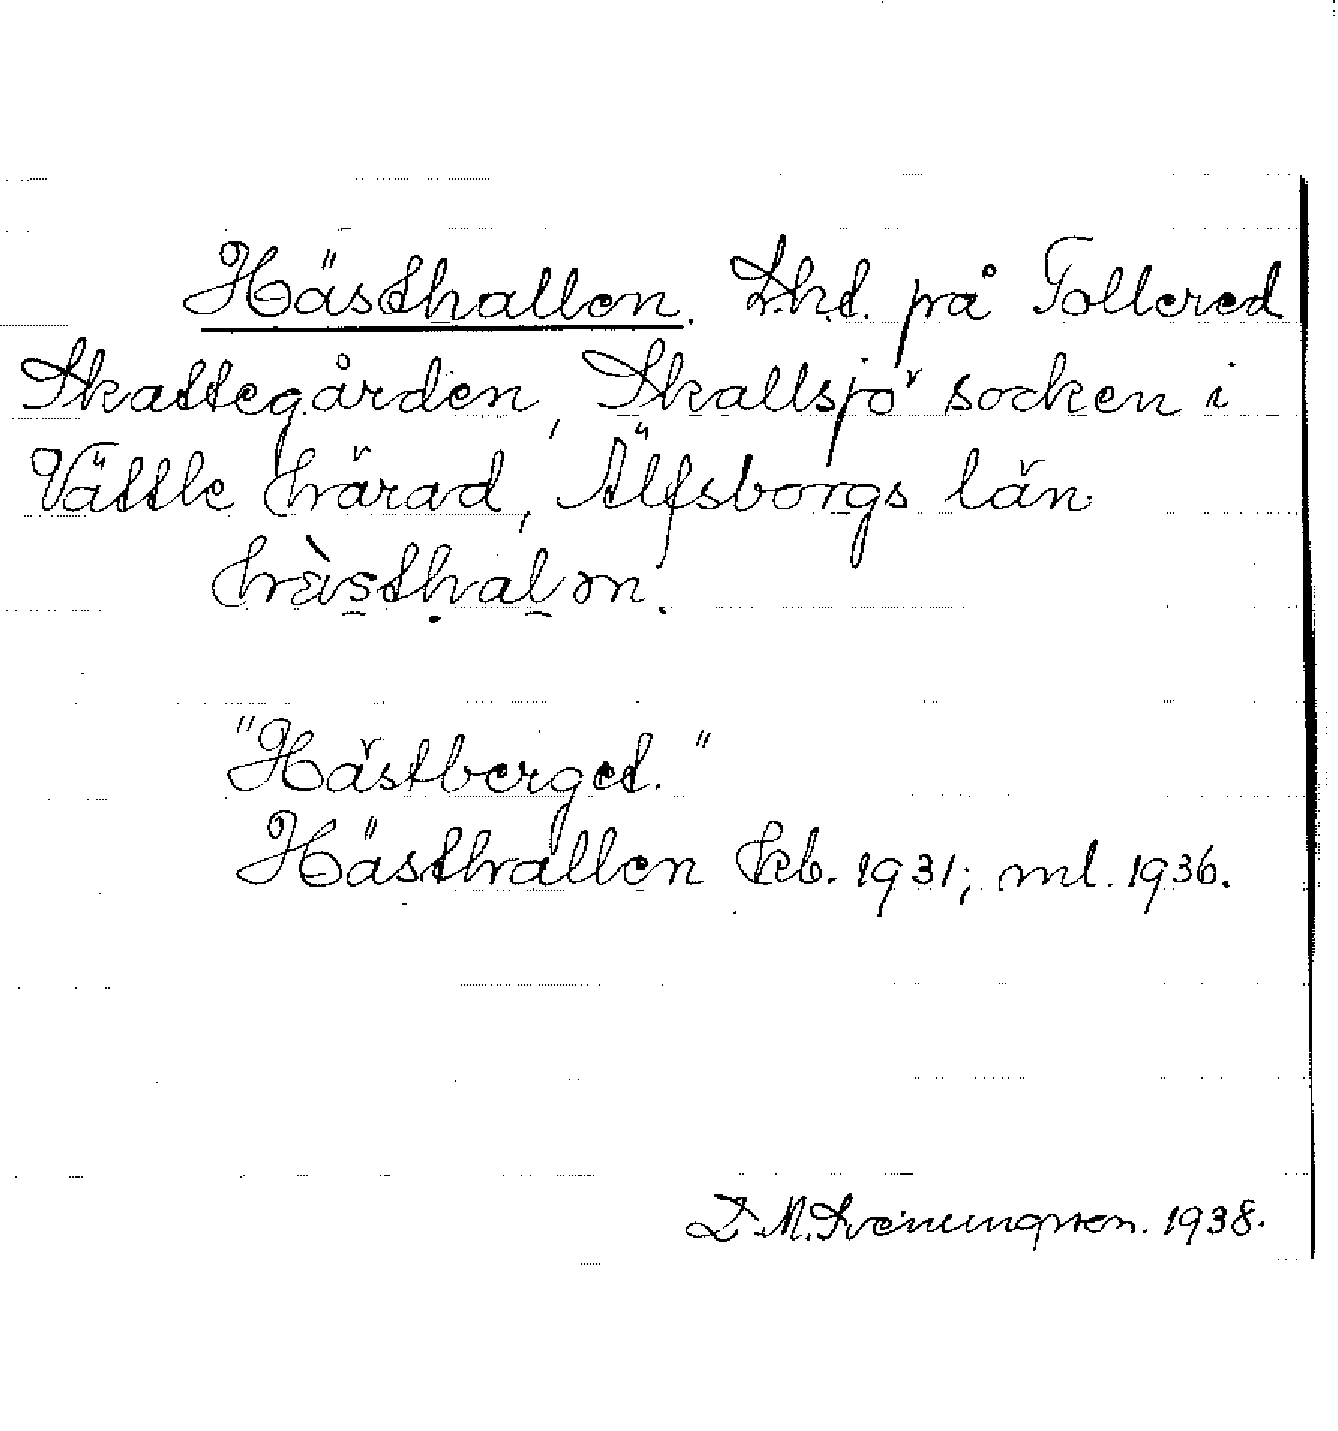 Hästhallen. L.h.d. på Tollered
Skattegården, Skallsjö socken i
Vättle härad, Älfsborgs län
hàsthalon.
"Hästberget."
Hästhallen Kkb. 1931; ml. 1936.
D. M. Sveningsson. 1938.